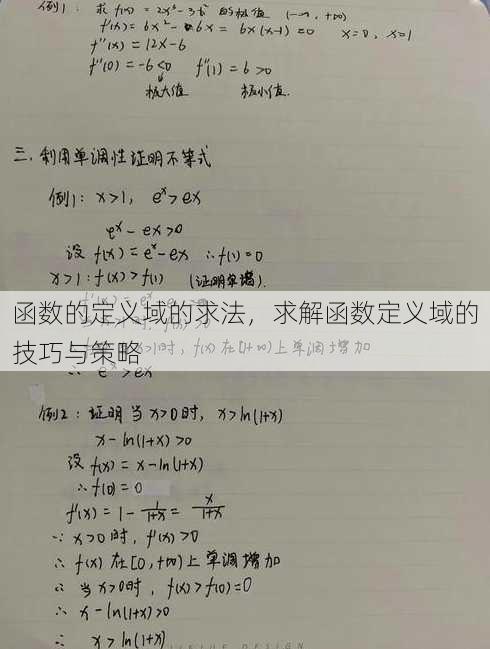 例1： 求 f(x) = 2x³-3x² 的极值 (-∞, +∞)
f'(x) = 6x² - 6x = 6x(x-1) = 0   x=0, x=1
f''(x) = 12x-6
f''(0) = -6 < 0   f''(1) = 6 > 0
极大值   极小值.
三. 利用单调性证明不等式
例1： x>1, eˣ > ex
eˣ - ex > 0
设 f(x) = eˣ - ex ∴ f(1) = 0
x>1 : f(x) > f(1) (证明单增).
函数的定义域的求法，求解函数定义域的
技巧与策略
x>1时, f(x) 在[1+∞)上单调增加
∴ eˣ > ex
例2： 证明 当 x>0时, x>ln(1+x)
x - ln(1+x) > 0
设 f(x) = x - ln(1+x)
∴ f(0) = 0
f'(x) = 1 - 1/(1+x) = x/(1+x)
∵ x>0时, f'(x) > 0
∴ f(x) 在[0, +∞)上单调增加
∴ 当 x>0时, f(x) > f(0) = 0
∴ x - ln(1+x) > 0
∴ x > ln(1+x)
DESIGN